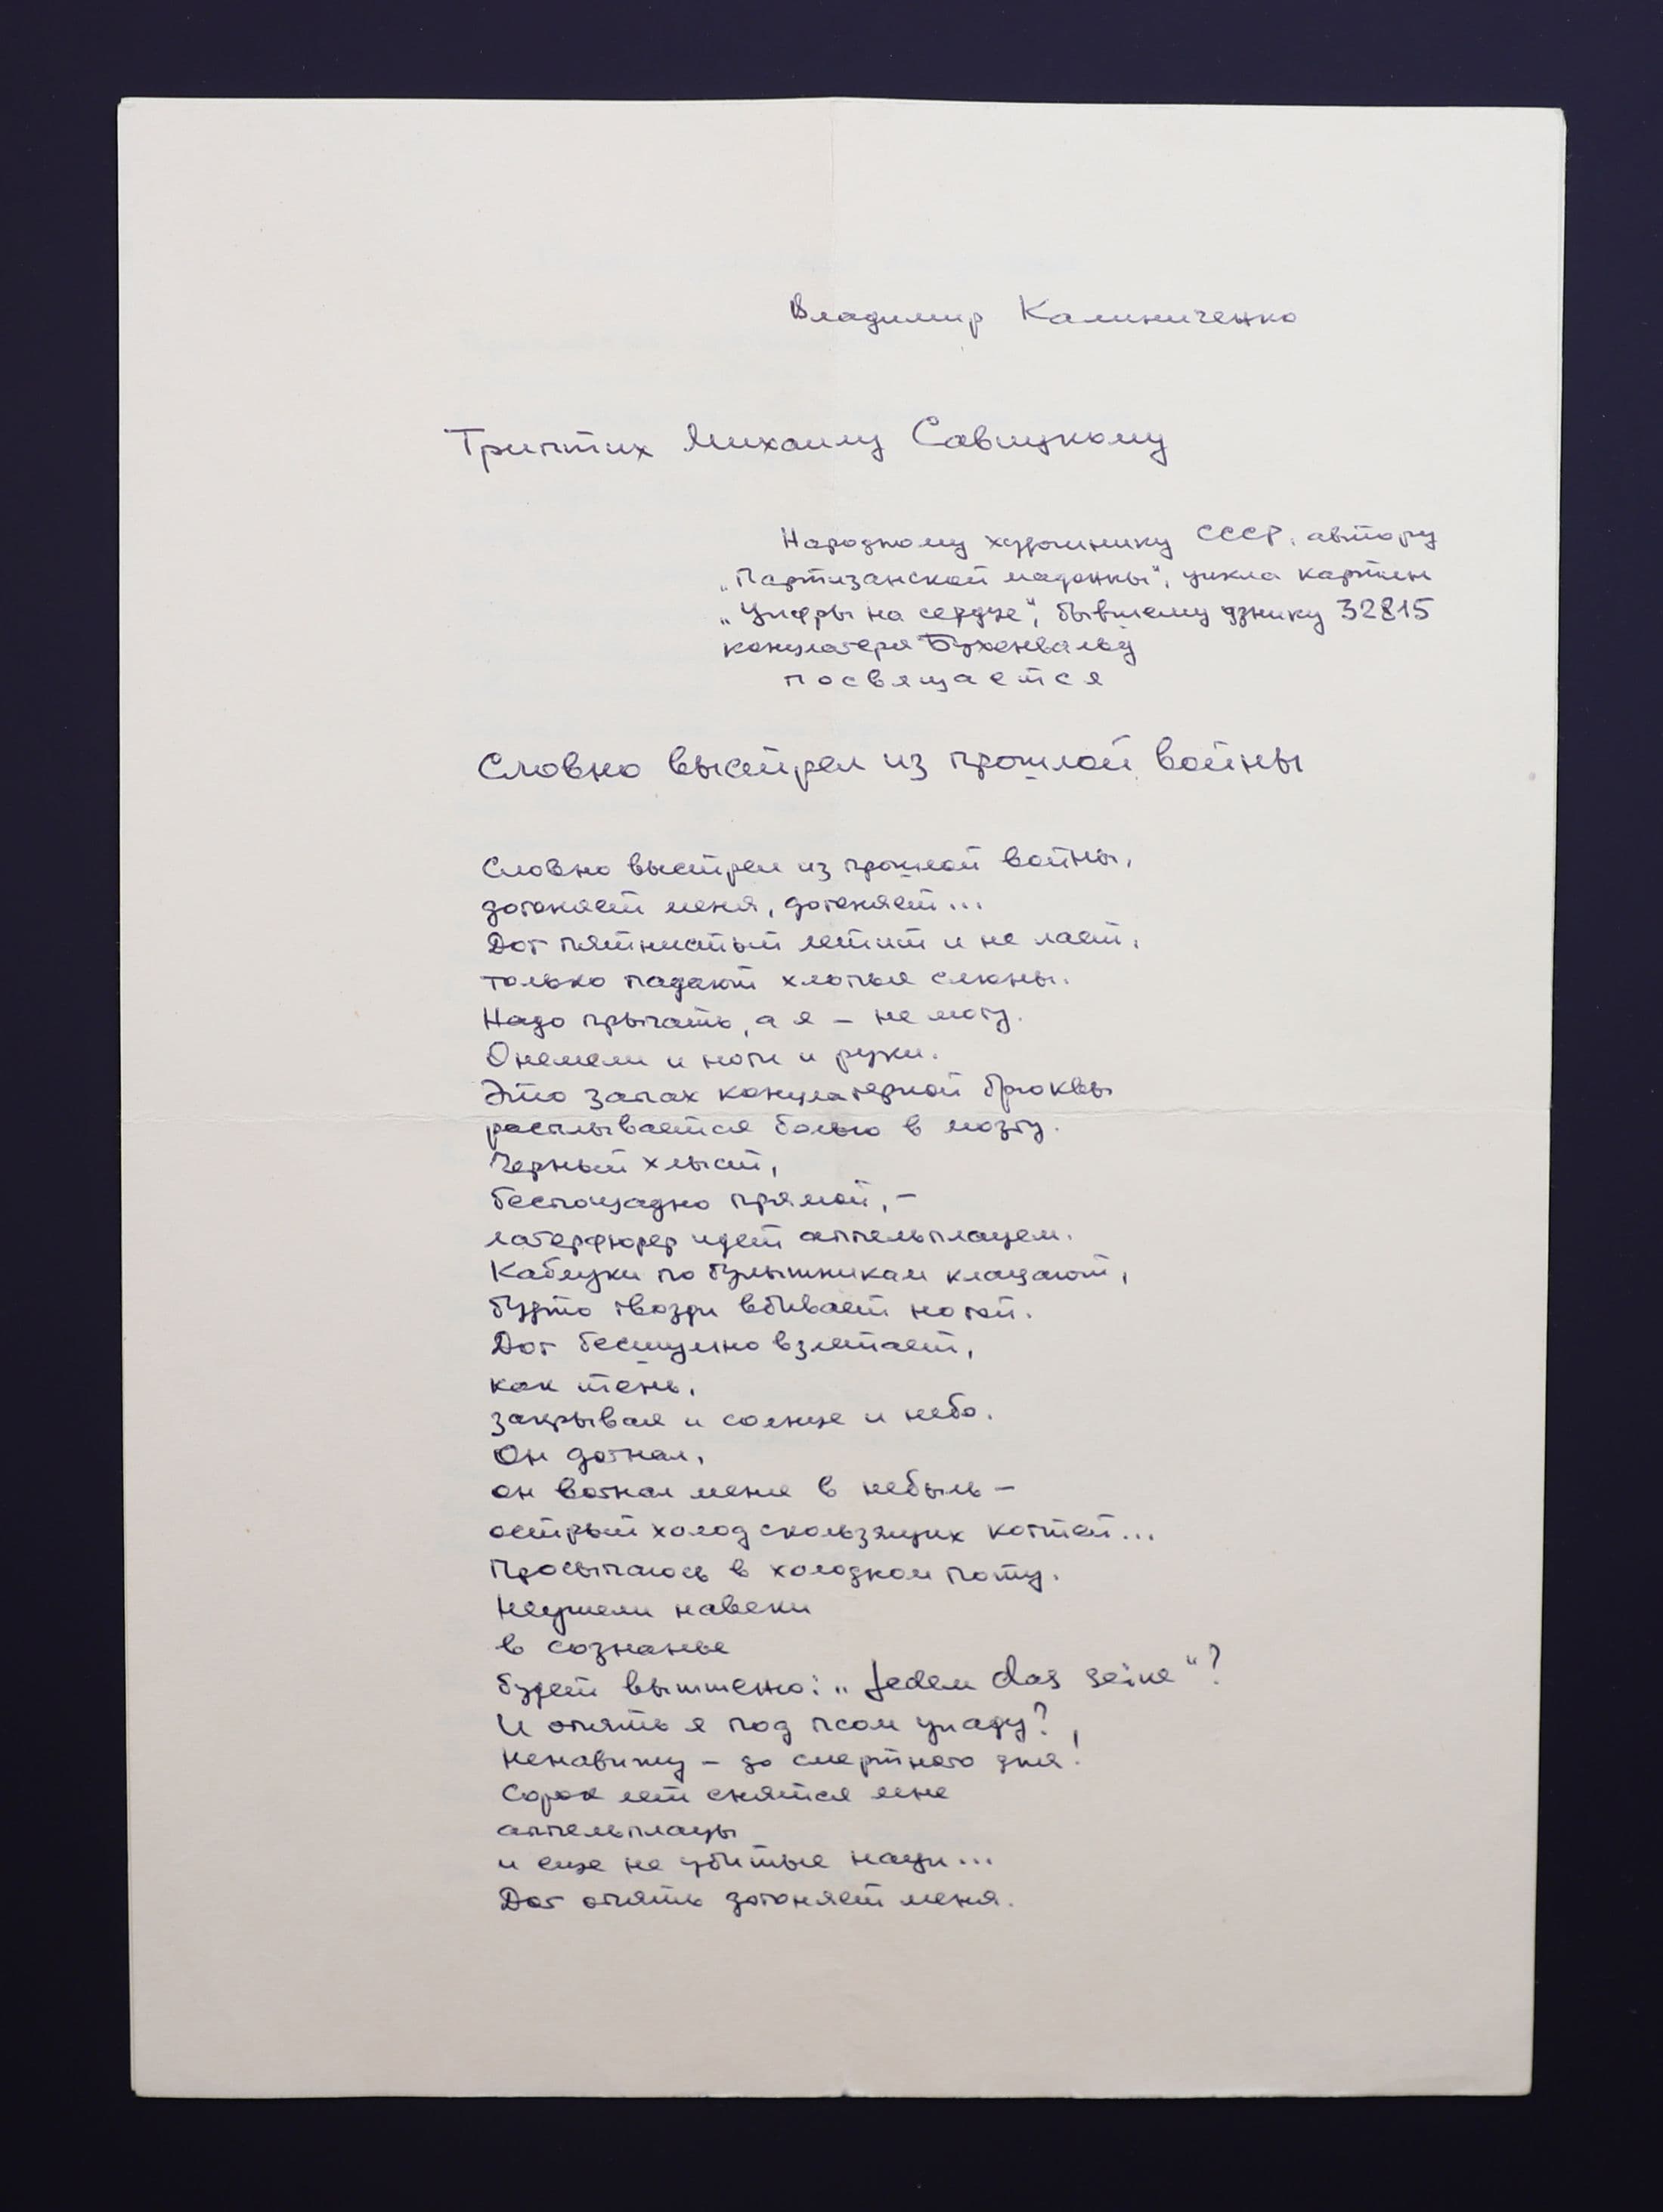 Владимир Калиниченко
Триптих Михаилу Савицкому
Народному художнику СССР, автору
„Партизанской мадонны“, цикла картин
„Цифры на сердце“, бывшему узнику 32815
концлагеря Бухенвальд
посвящается
Словно выстрел из прошлой войны
Словно выстрел из прошлой войны,
догоняет меня, догоняет...
Дог пятнистый летит и не лает,
только падают хлопья слюны.
Надо прыгать, а я – не могу.
Онемели и ноги и руки.
Это запах концлагерной брюквы
расплывается болью в мозгу.
Черный хлыст,
беспощадно прямой, –
лагерфюрер идет аппельплацем.
Каблуки по булыжникам клацают,
будто гвозди вбивает ногой.
Дог бесшумно взлетает,
как тень,
закрывая и солнце и небо.
Он догнал,
он вогнал меня в небыль –
острый холод скользящих когтей...
Просыпаюсь в холодном поту.
Неужели навеки
в сознанье
будет выжжено: „Jedem das seine“?
И опять я под псом упаду?
Ненавижу – до смертного дня!
Сорок лет снятся мне
аппельплацы
и еще не убитые наци...
Дог опять догоняет меня.